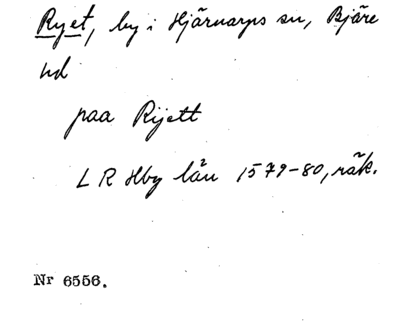 Ryet, by i Hjärnarps sn, Bjäre
hd
paa Rijett
L R Hby län 1579-80, räk.
Nr 6556.